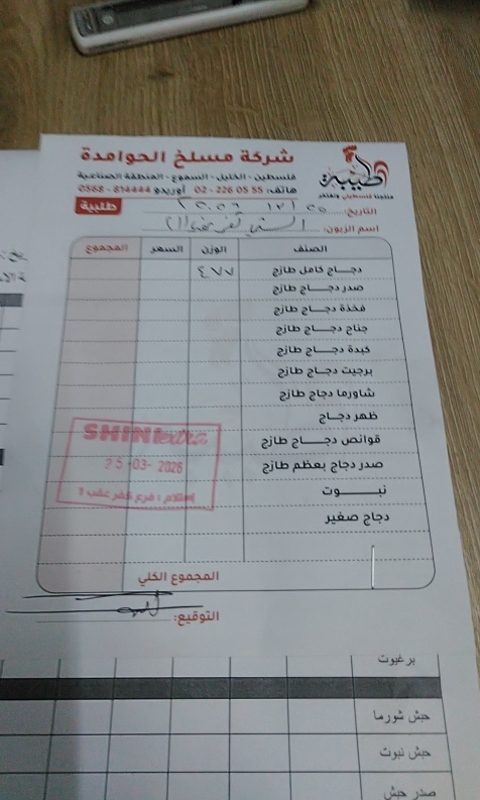 شركة مسلخ الحوامدة
فلسطين - الخليل - السموع - المنطقة الصناعية
هاتف: 55 05 226 - 02 أوريدو 814444 - 0568
طيبة
طلبية
التاريخ: ٢٥ / ٣ / ٢٠٢٦
اسم الزبون:
الصنف الوزن السعر المجموع
دجاج كامل طازج ٤٧٧
صدر دجاج طازج
فخذة دجاج طازج
جناح دجاج طازج
كبدة دجاج طازج
برجيت دجاج طازج
شاورما دجاج طازج
ظهر دجاج
قوانص دجاج طازج
صدر دجاج بعظم طازج
نبوت
دجاج صغير
SHINI extra
25-03-2026
استلام : فرع كفر عقب 1
المجموع الكلي
التوقيع:
برغيوت
حبش شورما
حبش نبوت
صدر حبش